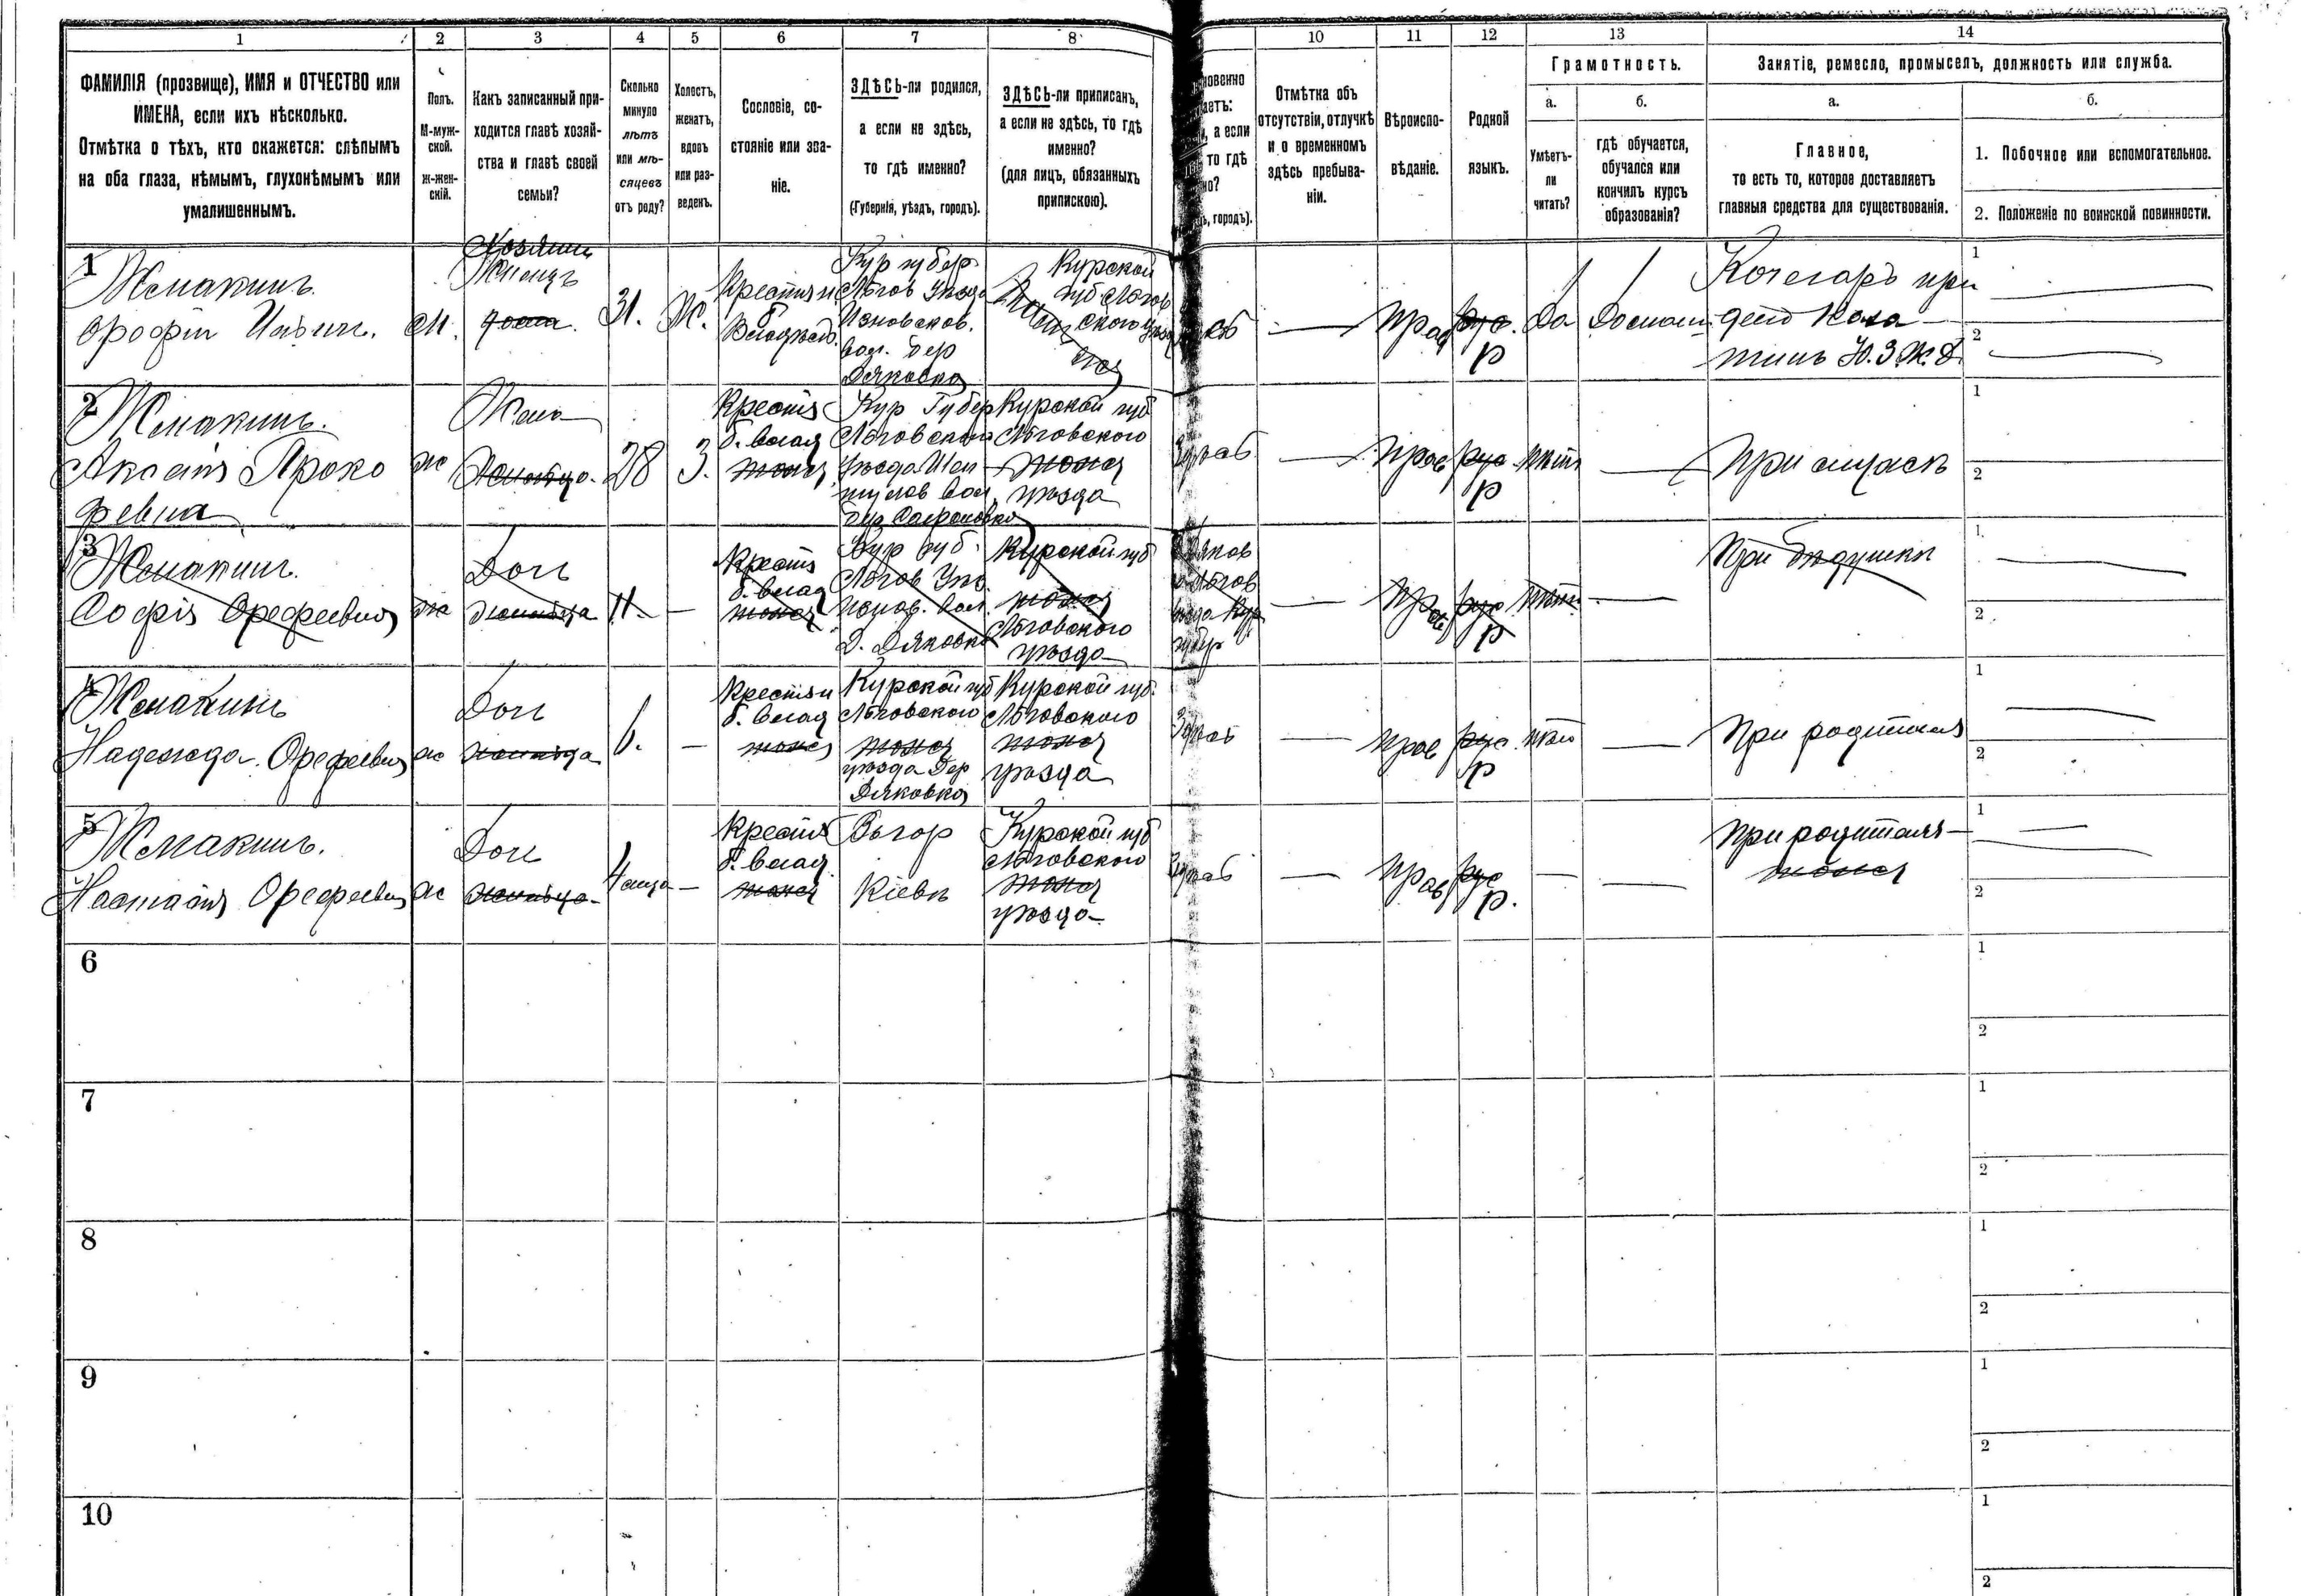 1 2 3 4 5 6 7 8 10 11 12 13 14
ФАМИЛІЯ (прозвище), ИМЯ и ОТЧЕСТВО или
ИМЕНА, если ихъ нѣсколько.
Отмѣтка о тѣхъ, кто окажется: слѣпымъ
на оба глаза, нѣмымъ, глухонѣмымъ или
умалишеннымъ.
Полъ.
М-муж-
ской.
ж-жен-
скій.
Какъ записанный при-
ходится главѣ хозяй-
ства и главѣ своей
семьи?
Сколько
минуло
лѣтъ
или мѣ-
сяцевъ
отъ роду?
Холостъ,
женатъ,
вдовъ
или раз-
веденъ.
Сословіе, со-
стояніе или зва-
ніе.
ЗДѢСЬ-ли родился,
а если не здѣсь,
то гдѣ именно?
(Губернія, уѣздъ, городъ).
ЗДѢСЬ-ли приписанъ,
а если не здѣсь, то гдѣ
именно?
(для лицъ, обязанныхъ
припискою).
новенно
аетъ:
, а если
то гдѣ
но?
ъ, городъ).
Отмѣтка объ
отсутствіи, отлучкѣ
и о временномъ
здѣсь пребыва-
ніи.
Вѣроиспо-
вѣданіе.
Родной
языкъ.
Грамотность.
а.
Умѣетъ-
ли
читать?
б.
гдѣ обучается,
обучался или
кончилъ курсъ
образованія?
Занятіе, ремесло, промыселъ, должность или служба.
а.
Главное,
то есть то, которое доставляетъ
главныя средства для существованія.
б.
1. Побочное или вспомогательное.
2. Положеніе по воинской повинности.
1
Жмакинъ.
Орофій Ильич.
М.
Хозяинъ
Жилецъ
дома.
31.
Ж.
Крестян
б
Владѣл.
Кур губер
Льгов Уѣзда
вол. дер
Дяковка
Курской
губ Льгов
ского
прав
рус.
р
Да
Домаш
Кочегаръ при
депо Каза
тинъ Ю.З.Ж.Д.
1
2
2
Жмакинъ.
Проко
февна
ж
Жена
Жильца.
28
З.
Крестя
б. влад
тоже
Кур Губер
Льговскаго
Уѣзда
вол
Курской губ
Льговского
тоже
уѣзда
прав
рус
р
нѣтъ
1
2
3
Жмакинъ.
Софія Орефеевна
ж
Доч
жильца
11.
Крест
б. влад
тоже
Кур губ.
Льгов Уѣз.
вол.
Д. Дяковка
Курской губ
тоже
Льговского
уѣзда
Дяков
Льгов
уѣзда Кур
губер
прав
рус
р
нѣт
При дѣдушки
1.
2
4
Жмакинъ
Надежда Орефеевна
ж
Доч
жильца
6.
Крестян
б. влад
тоже
Курской губ
Льговского
тоже
уѣзда Дер
Дяковка
Курской губ.
Льговского
тоже
уѣзда
прав
рус
р
нѣт
При родителя
1
2
5
Жмакинъ.
Настасія Орефеевна
ж
Доч
Жильца
Крестя
б. влад
тоже
В гор
Кіевѣ
Курской губ
Льговского
тоже
уѣзда
прав
рус
р.
При родителя
тоже
1
2
6
1
2
7
1
2
8
1
2
9
1
2
10
1
2